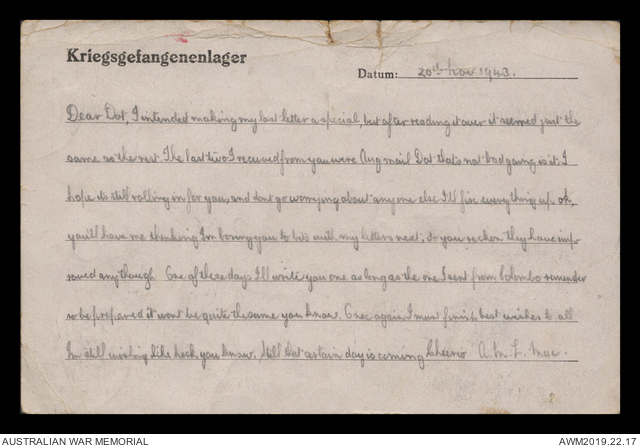 Kriegsgefangenenlager
Datum: 20th Nov 1943.
Dear Dot, I intended making my last letter a special, but after reading it over it seemed just the
same as the rest. The last two I received from you were Aug mail Dot that's not bad going is it. I
hope its still rolling in for you, and dont go worrying about anyone else I'll fix everything up ok,
you'll have me thinking I'm boring you to bits with my letters next, do you reckon they have imp
roved any though. One of these days I'll write you one as long as the one I sent from Colombo remember
so be prepared it wont be quite the same you know. Once again I must finish, best wishes to all
I'm still wishing like heck you know, still Dot certain day is coming Cheerio A.M.L. Mac.
AUSTRALIAN WAR MEMORIAL
AWM2019.22.17